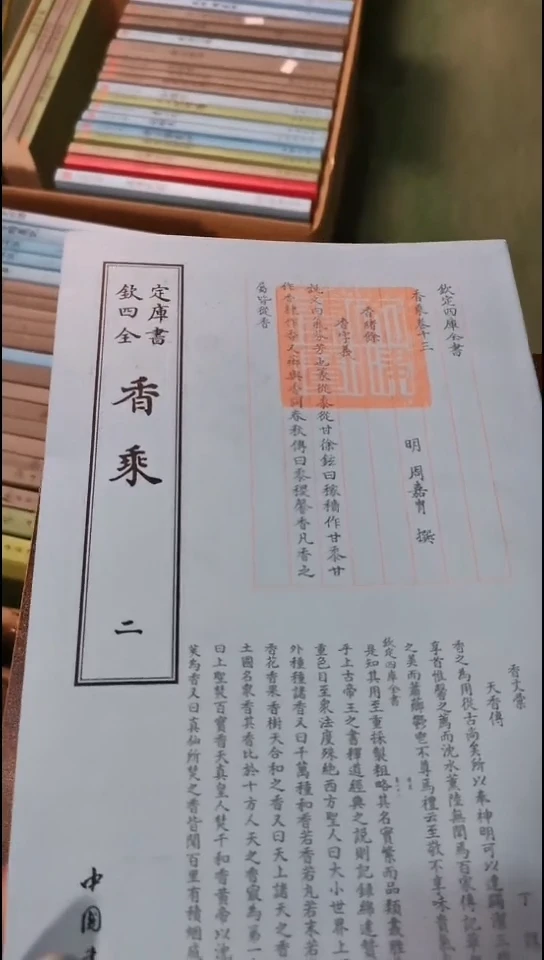 欽定四庫全書
香乘
二
中國書
欽定四庫全書
香乘卷十三
明 周嘉胄 撰
香緒餘
香字義
説文曰氣芬芳也篆從黍從甘徐鉉曰稼穡作甘黍甘
作香隸作香又鄉與香同春秋傳曰黍稷馨香凡香之
屬皆從香
香文彚
天香傳
香之為用從古尚矣所以奉神明可以達蠲潔三
享首惟馨之薦而沈水薰陸無聞焉百家傳記萃
之美而蕭薌鬱鬯不尊焉禮云至敬不享味貴氣
欽定四庫全書
是知其用至重採製粗略其名實繁而品類叢雜
乎上古帝王之書釋道經典之説則記録綿遠贊
重色目至衆法度殊絶西方聖人曰大小世界上
外種種諸香又曰千萬種和香若香若丸若末若
香花香果香樹天合和之香又曰天上諸天之香
土國名衆香其香比於十方人天之香最為第一
曰上聖焚百寳香天真皇人焚千和香黄帝以沈
為香又曰真仙所焚之香皆聞百里有積烟成